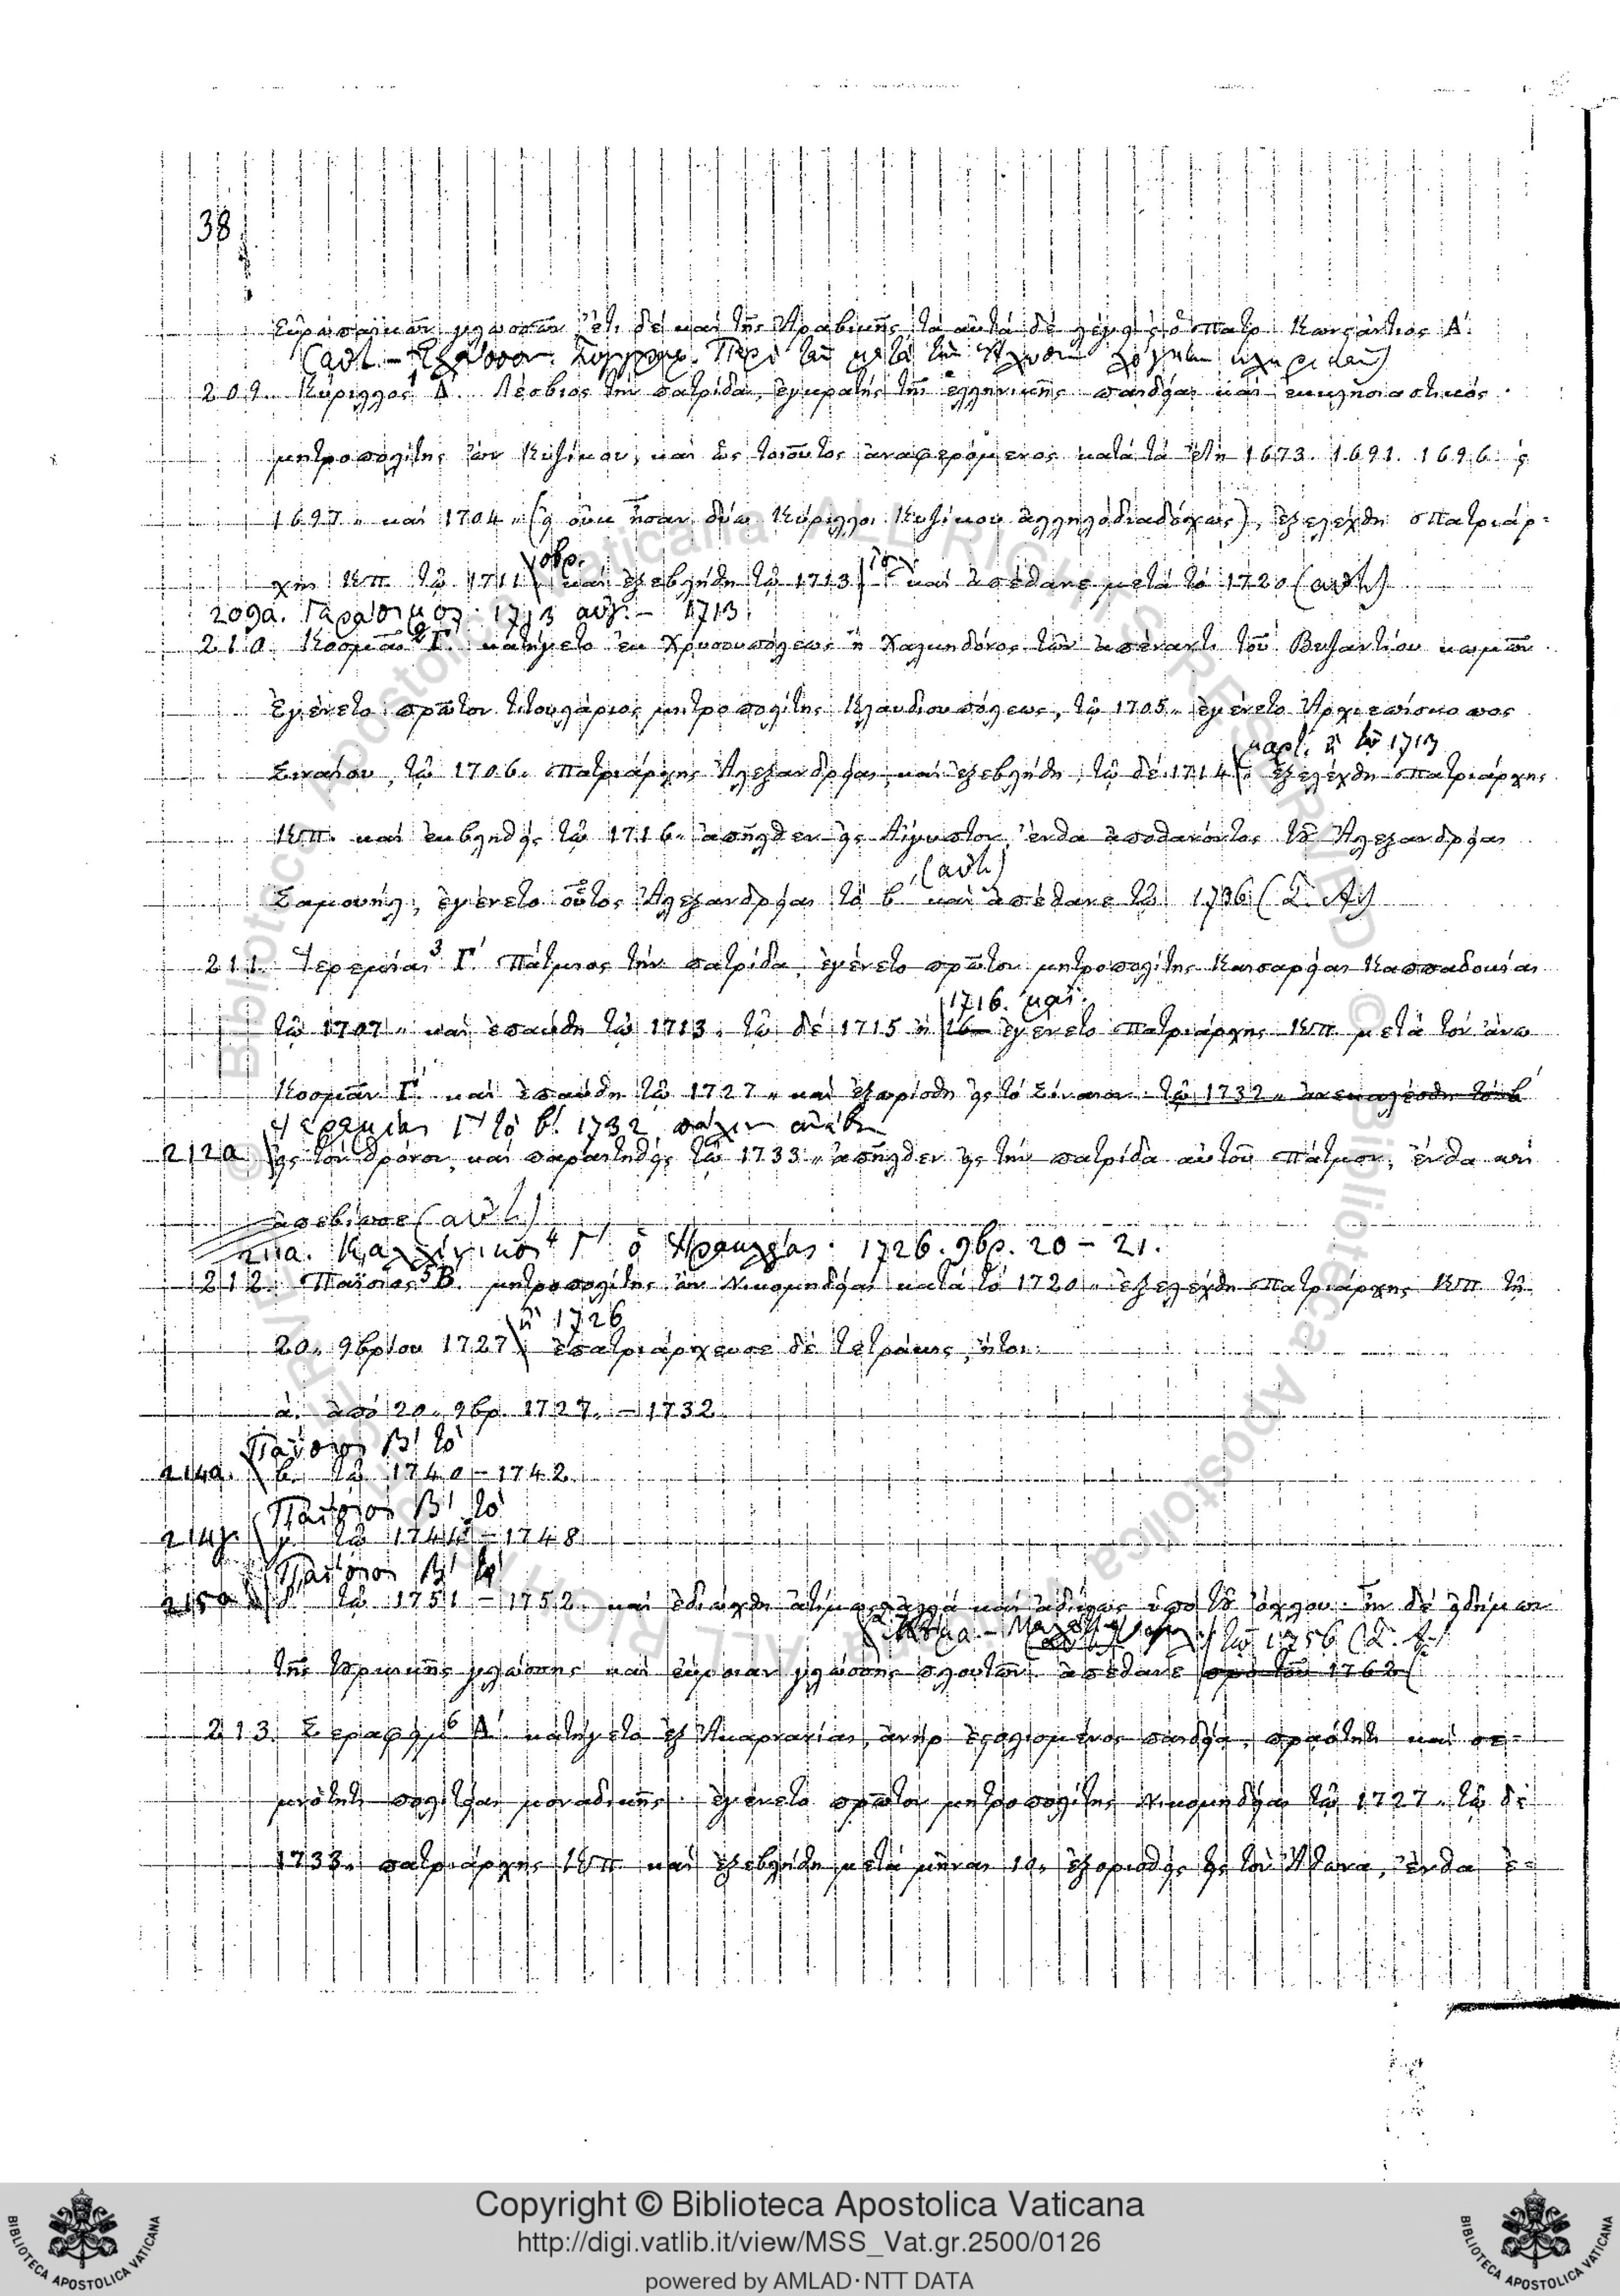 38
Εὐρωπαϊκῶν γλωσσῶν ἔτι δὲ καὶ τῆς Ἀραβικῆς, τὰ αὐτὰ δὲ λέγει ϛ ὁ Πατρ. Κωνϛάντιος Α΄.
209. Κύριλλος Δ΄. Λέσβιος τὴν πατρίδα, ἐγκρατὴς τῆς ἑλληνικῆς παιδείας καὶ ἐκκλησιαστικός·
μητροπολίτης ὢν Κυζίκου, καὶ ὡς τοιοῦτος ἀναφερόμενος κατὰ τὰ ἔτη 1673. 1691. 1696. ϛ
1697. καὶ 1704. (ἢ οὐκ ἦσαν δύω Κύριλλοι Κυζίκου ἀλληλοδιαδόχως), ἐξελέχθη Πατριάρ-
χης ΚΠ. τῷ 1711 καὶ ἐξεβλήθη τῷ 1713 καὶ ἀπέθανε μετὰ τὸ 1720 (αὐτ.)
209α. 1713 αὐγ. – 1713.
210. Κοσμᾶς 2 Γ΄. κατήγετο ἐκ Χρυσουπόλεως ἢ Χαλκηδόνος τῶν ἀπέναντι τοῦ Βυζαντίου κωμῶν.
Ἐγένετο πρῶτον τιτουλάριος μητροπολίτης Κλαυδιουπόλεως, τῷ 1705. ἐγένετο Ἀρχιεπίσκοπος
μαρτ. ἢ τῷ 1713
Σιναίου, τῷ 1706. Πατριάρχης Ἀλεξανδρείας, καὶ ἐξεβλήθη, τῷ δὲ 1714 ἐξελέχθη Πατριάρχης
ΚΠ. καὶ ἐκβληθεὶς τῷ 1716. ἀπῆλθεν εἰς Αἴγυπτον, ἔνθα ἀποθανόντος τοῦ Ἀλεξανδρείας
(αὐτ.)
Σαμουήλ, ἐγένετο οὗτος Ἀλεξανδρείας τὸ β΄ καὶ ἀπέθανε τῷ 1736 (Σ. Α.)
211. Ἱερεμίας 3 Γ΄. Πάτμιος τὴν πατρίδα, ἐγένετο πρῶτον μητροπολίτης Καισαρείας Καππαδοκίας
1716. μαρ.
τῷ 1707. καὶ ἐπαύθη τῷ 1713. τῷ δὲ 1715 ἢ 16 ἐγένετο Πατριάρχης ΚΠ. μετὰ τὸν ἄνω
Κοσμᾶν Γ΄. καὶ ἐπαύθη τῷ 1727. καὶ ἐξωρίσθη εἰς τὸ Σίναιον. τῷ 1732. ἀνεκαλέσθη τὸ β΄
Ἱερεμίας Γ΄ τὸ β΄. 1732 πάλιν ἀνέβη
212α εἰς τὸν θρόνον, καὶ παραιτηθεὶς τῷ 1733. ἀπῆλθεν εἰς τὴν πατρίδα αὐτοῦ Πάτμον, ἔνθα καὶ
ἀπεβίωσε (αὐτ.)
211α. Καλλίνικος 4 Γ΄ ὁ Ἡρακλείας. 1726. 9βρ. 20 – 21.
212. Παΐσιος 5 Β΄. μητροπολίτης ὢν Νικομηδείας κατὰ τὸ 1720. ἐξελέχθη Πατριάρχης ΚΠ. τῇ
ἢ 1726
20. 9βρίου 1727 ἐπατριάρχευσε δὲ τετράκις, ἤτοι:
α. ἀπὸ 20. 9βρ. 1727. – 1732.
Παΐσιος Β΄ τὸ
214α. β. τῷ 1740 – 1742.
Παΐσιος Β΄ τὸ
214γ. γ. τῷ 1744 – 1748.
Παΐσιος Β΄ τὸ
215α δ. τῷ 1751 – 1752. καὶ ἐδιώχθη καὶ ἀδίκως ὑπὸ τοῦ ὄχλου. ἦν δὲ εἰδήμων
τῷ 1756 (Σ. Α.)
τῆς Τουρκικῆς γλώσσης καὶ εὔροιαν γλώσσης πλουτῶν. ἀπέθανε πρὸ τοῦ 1762
213. Σεραφεὶμ 6 Α΄. κατήγετο ἐξ Ἀκαρνανίας, ἀνὴρ ἐϛολισμένος παιδείᾳ, πραότητι καὶ σε-
μνότητι πολιτείας μοναδικῆς. ἐγένετο πρῶτον μητροπολίτης Νικομηδείας τῷ 1727. τῷ δὲ
1733. πατριάρχης ΚΠ. καὶ ἐξεβλήθη μετὰ μῆνας 10. ἐξορισθεὶς εἰς τὸν Ἄθωνα, ἔνθα ἐ-
Copyright © Biblioteca Apostolica Vaticana
http://digi.vatlib.it/view/MSS_Vat.gr.2500/0126
powered by AMLAD·NTT DATA
BIBLIOTECA APOSTOLICA VATICANA
BIBLIOTECA APOSTOLICA VATICANA